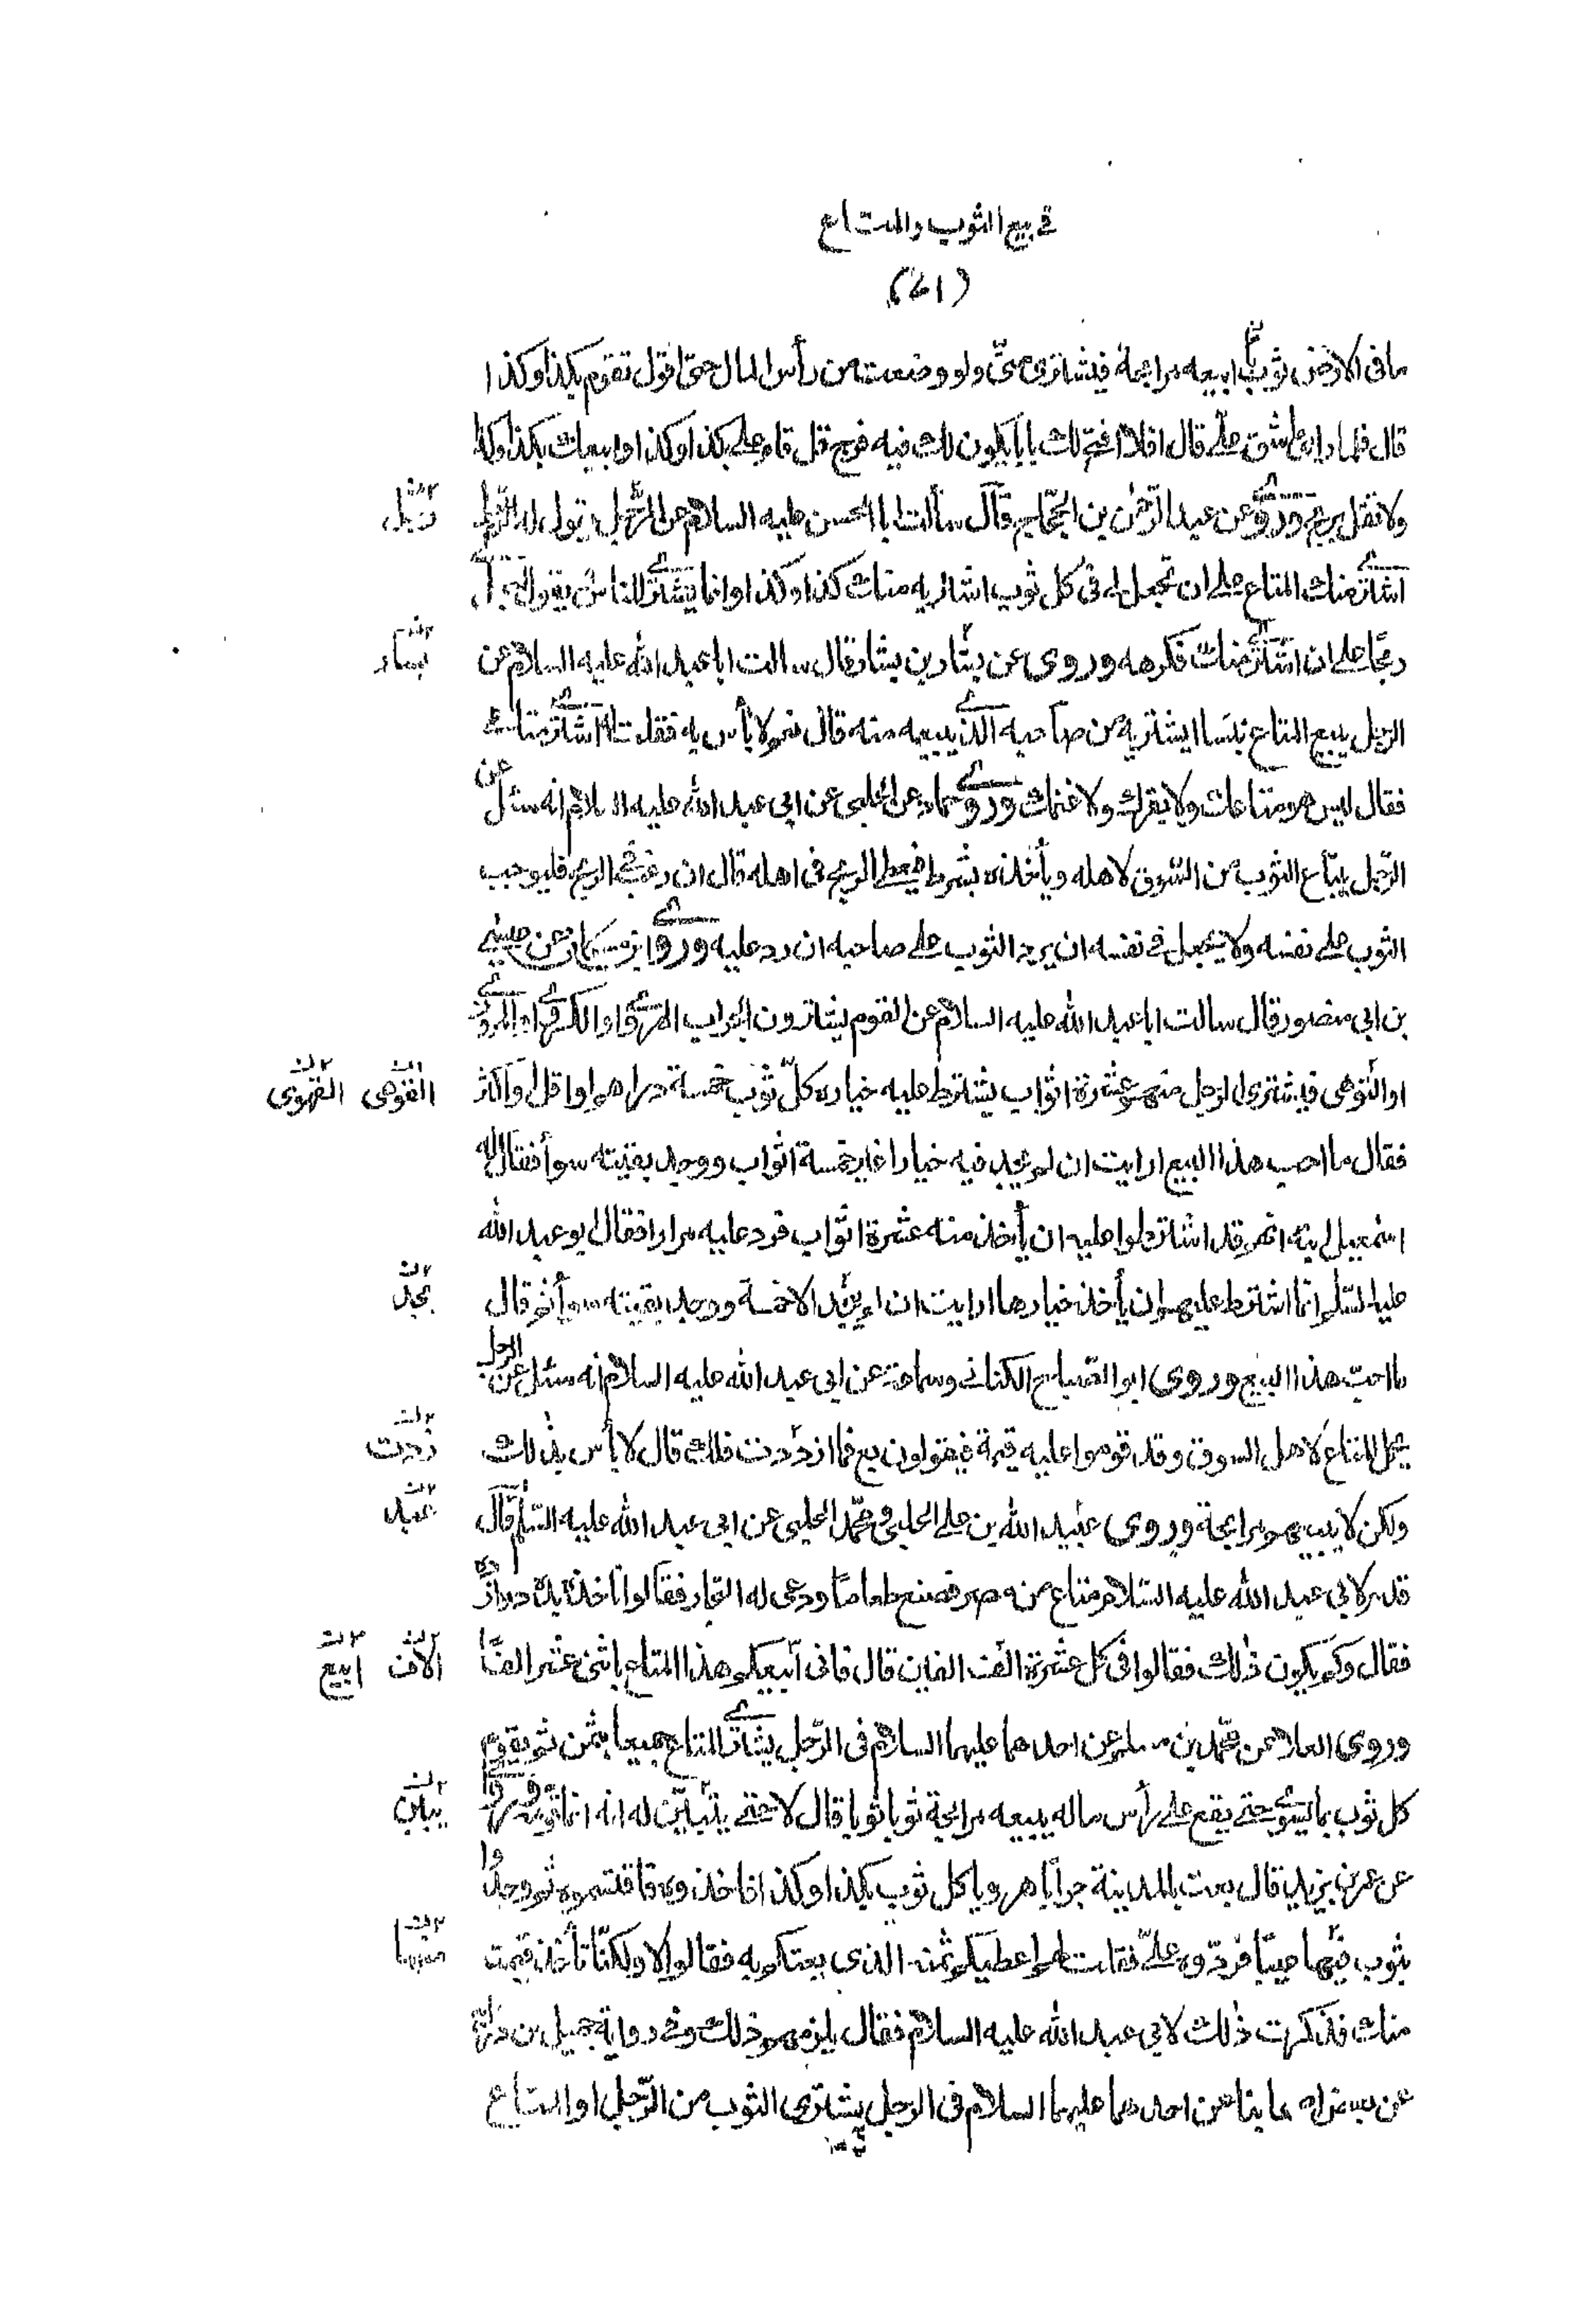 في بيع الثوب والمتاع
(٧١)
ما في الارض ثوب ابيعه مرابحة فيشترى منّى ولو وضعت من رأس المال حتى اقول تقوم بكذا وكذا
قال فلما راى ما شق علي قال افلا افتح لك بابا يكون لك فيه فرج قل قام علي بكذا وكذا وابيعك بكذا وكذا
ولا تقل بربح وروى عن عبد الرّحمٰن بن الحجّاج قال سألت ابا الحسن عليه السلام عن الرّجل يقول له الرّجل
اشترى منك المتاع على ان تجعل لي في كل ثوب اشتريه منك كذا وكذا وانما يشترى للناس يقول اجعل
ربحًا على ان اشترى منك فكرهه وروى عن بشار بن بشار قال سالت ابا عبد الله عليه السلام عن
بسار
الرجل يبيع المتاع بنسا ايشتريه من صاحبه الذي يبيعه منه قال نعم لا بأس به فقلت له اشترى متاعى
فقال ليس هو متاعك ولا بقرك ولا غنمك وروى حماد عن الحلبى عن ابي عبد الله عليه السلام انه سئل عن
الرّجل يبتاع الثوب من السّوق لاهله ويأخذه بشرط فيعطى الربح في اهله قال ان رغب في الربح فليوجب
الثوب على نفسه ولا يجعل في نفسه ان يرد الثوب على صاحبه ان رد عليه وروى ابن مسكان عن عيسى
بن ابي منصور قال سالت ابا عبد الله عليه السلام عن القوم يشترون الجراب الهروى او الكرابيس او المروى
او القوهى فيشترى الرجل منهم عشرة اثواب يشترط عليه خياره كلّ ثوب خمسة دراهم او اقل او اكثر
القوهى القهوى
فقال ما احب هذا البيع ارايت ان لم يجد فيه خيارا غير خمسة اثواب ووجد بقيته سوأ فقال له
اسمعيل ابنه انهم قد اشترطوا عليه ان يأخذ منه عشرة اثواب فرد عليه مرارا فقال ابو عبد الله
عليه السّلم انما اشترط عليهم ان يأخذ خيارها ارايت ان لم يجد الا خمسة ووجد بقيته سوأ ثم قال
يجد
ما احبّ هذا البيع وروى ابو الصّباح الكنانى وسماعة عن ابي عبد الله عليه السلام انه سئل عن الرجل
يحمل المتاع لاهل السوق وقد قوموا عليه قيمة فيقولون بع فما ازددت فلك قال لا بأس بذلك
زدت
ولكن لا يبيعهم مرابحة وروى عبيد الله بن على الحلبى ومحمّد الحلبى عن ابى عبد الله عليه السّلم قال
عبيد
قدم لابي عبد الله عليه السّلام متاع من مصر فصنع طعامًا ودعى له التجار فقالوا نأخذه بده دوازده
فقال وكم يكون ذٰلك فقالوا في كل عشرة الف الفين قال فانى ابيعكم هذا المتاع باثنى عشر الفًا
الاف ابيع
وروى العلا عن محمّد بن مسلم عن احدهما عليهما السلام في الرّجل يشترى المتاع جميعا بثمن ثم يقوم
كل ثوب بما يسوى حتى يقع على رأس ماله يبيعه مرابحة ثوبا ثوبا قال لا حتى يتبيّن له انه انما قومه وروى
يبين
عن عمر بن يزيد قال بعت بالمدينة جرابا هرويا كل ثوب بكذا وكذا فاخذوه فاقتسموه ثم وجدوا
بثوب فيها عيبًا فردّوه علىّ فقلت لهم اعطيكم ثمنه الذى بعتكم به فقالوا لا ولكنّا نأخذ قيمته
منك فذكرت ذٰلك لابي عبد الله عليه السلام فقال يلزمهم ذلك وفي رواية جميل بن دراج
عن بعض اصحابنا عن احدهما عليهما السلام في الرجل يشترى الثوب من الرّجل او المتاع